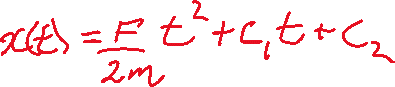 x(t) = F/2m t² + C₁t + C₂